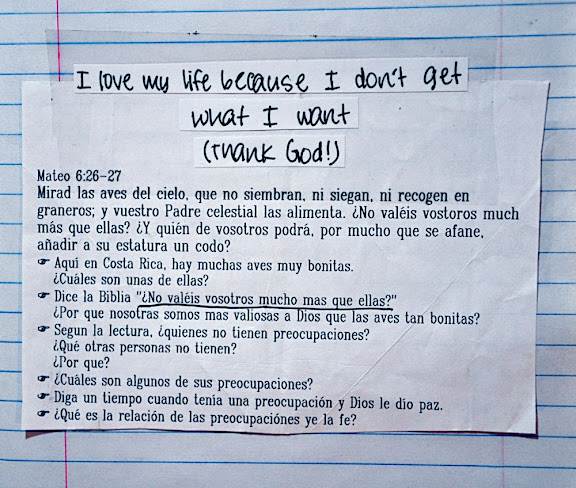 I love my life because I don't get
what I want
(Thank God!)
Mateo 6:26-27
Mirad las aves del cielo, que no siembran, ni siegan, ni recogen en
graneros; y vuestro Padre celestial las alimenta. ¿No valéis vostoros much
más que ellas? ¿Y quién de vosotros podrá, por mucho que se afane,
añadir a su estatura un codo?
☞ Aquí en Costa Rica, hay muchas aves muy bonitas.
¿Cuáles son unas de ellas?
☞ Dice la Biblia "¿No valéis vosotros mucho mas que ellas?"
¿Por que nosotras somos mas valiosas a Dios que las aves tan bonitas?
☞ Segun la lectura, ¿quienes no tienen preocupaciones?
¿Qué otras personas no tienen?
¿Por que?
☞ ¿Cuáles son algunos de sus preocupaciones?
☞ Diga un tiempo cuando tenía una preocupación y Dios le dio paz.
☞ ¿Qué es la relación de las preocupaciónes ye la fe?